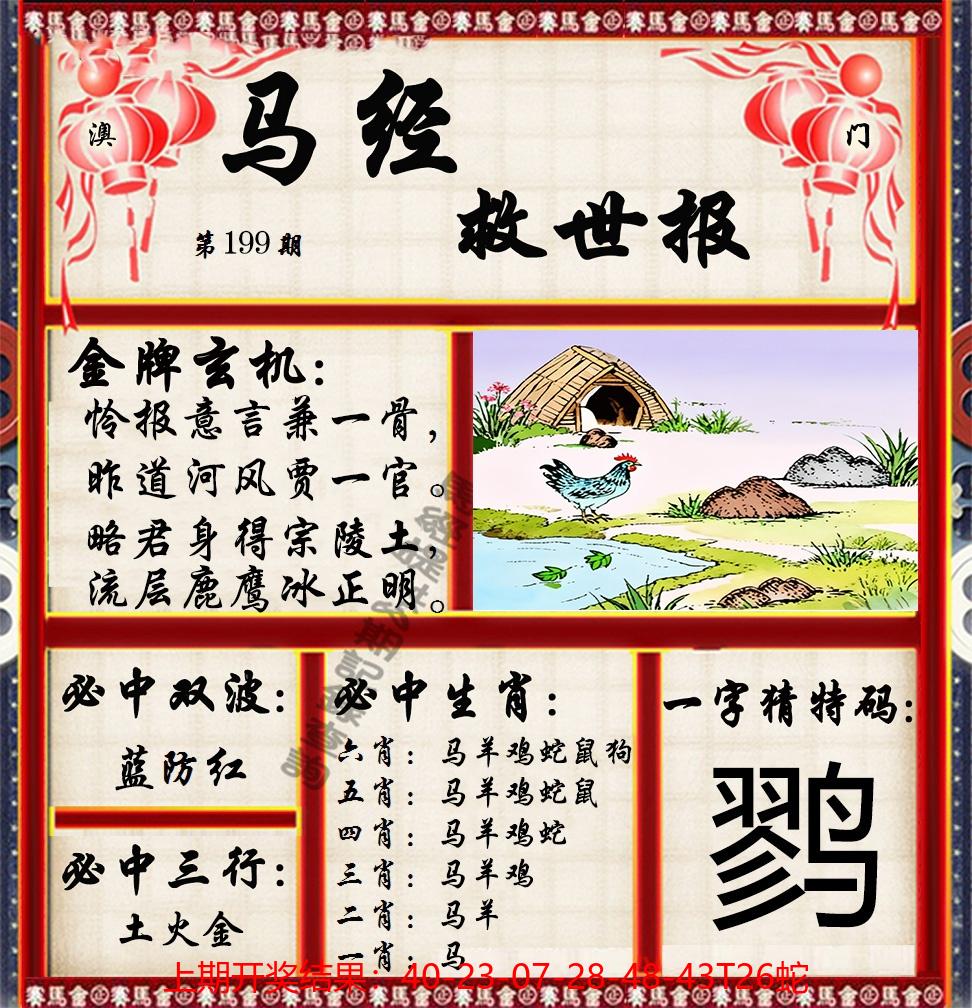 澳
门
马经
救世报
第199期
金牌玄机：
怜报意言兼一骨，
昨道河风贾一官。
略君身得宗陵土，
流层鹿鹰冰正明。
必中双波：
蓝防红
必中三行：
土火金
必中生肖：
六肖：马羊鸡蛇鼠狗
五肖：马羊鸡蛇鼠
四肖：马羊鸡蛇
三肖：马羊鸡
二肖：马羊
一肖：马
一字猜特码：
鹨
上期开奖结果：40-23-07-28-48-43T26蛇